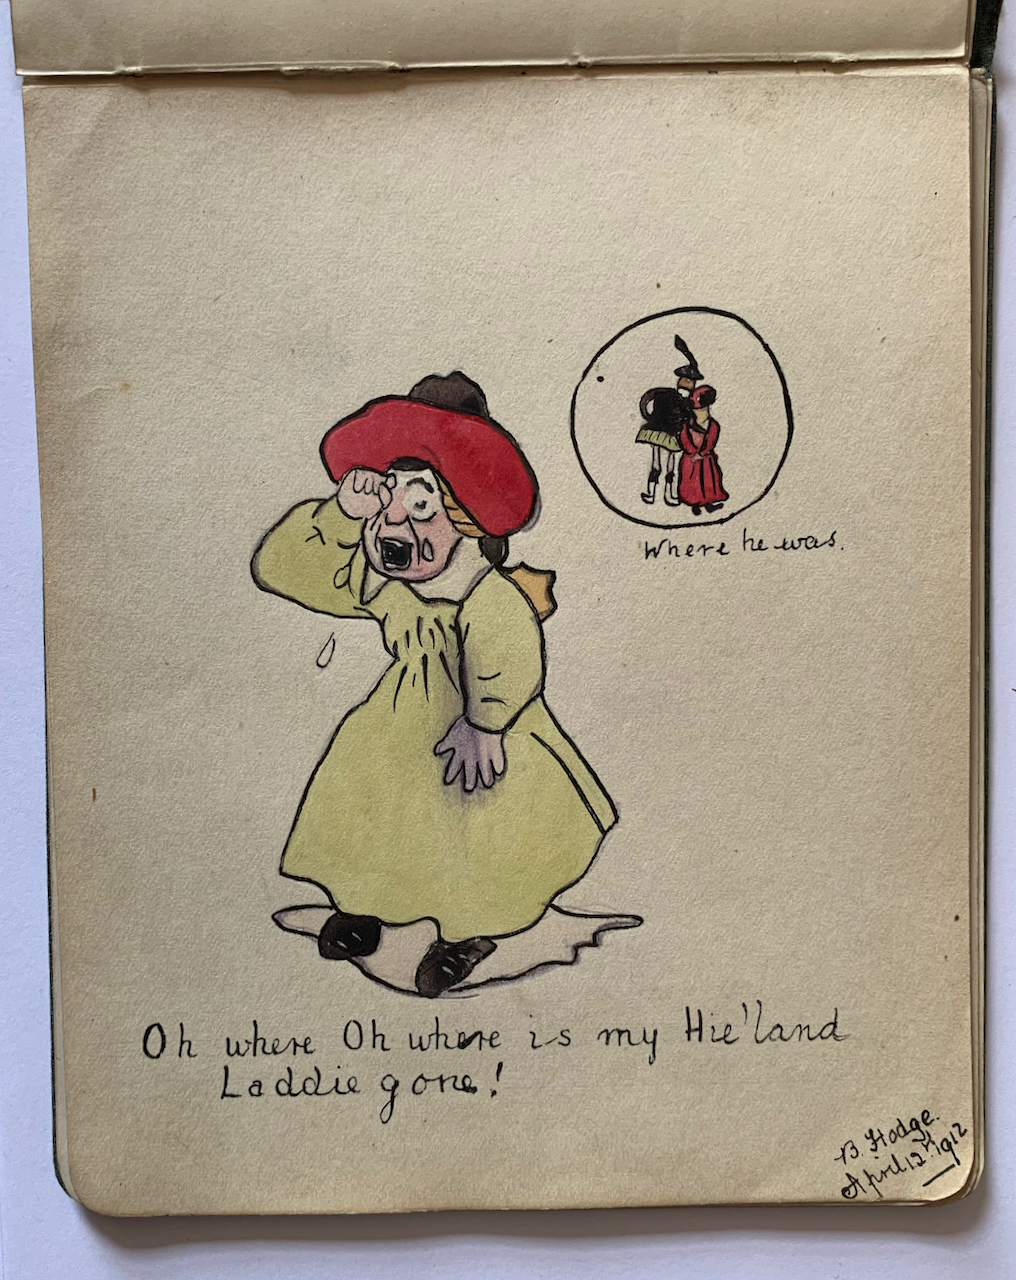 Where he was.
Oh where Oh where is my Hie'land
Laddie gone!
B. Hodge.
April 12th 1912